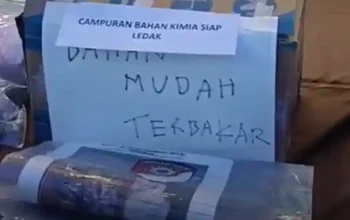 CAMPURAN BAHAN KIMIA SIAP
LEDAK
BAHAN
MUDAH
TERBAKAR